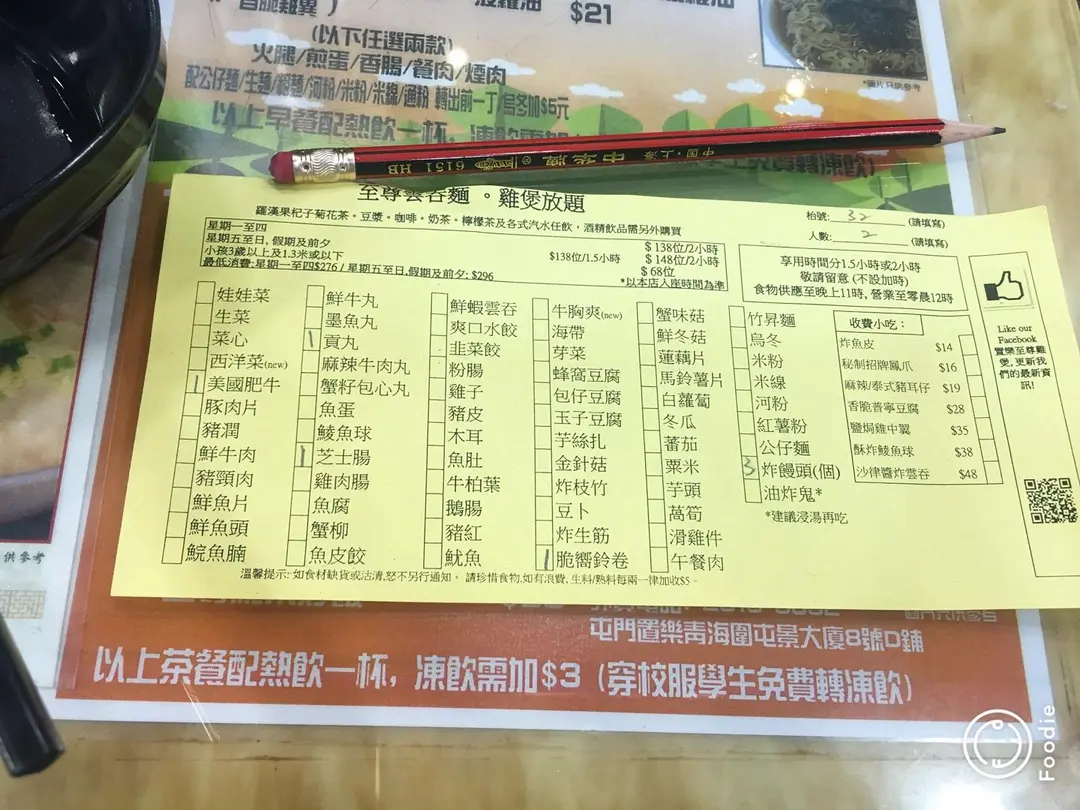 菠蘿油 $21
(以下任選兩款)
火腿/煎蛋/香腸/餐肉/煙肉
配公仔麵/生麵/粗麵/河粉/米粉/米線/通粉 轉出前一丁/烏冬加$5元
以上早餐配熱飲一杯，凍飲需加
免費轉凍飲)
*圖片只供參考
中國·上海 中华牌 6151 HB
至尊雲吞麵。雞煲放題
羅漢果杞子菊花茶。豆漿。咖啡。奶茶。檸檬茶及各式汽水任飲，酒精飲品需另外購買
枱號: 32 (請填寫)
人數: 2 (請填寫)
星期一至四 $138位/2小時
星期五至日, 假期及前夕 $138位/1.5小時 $148位/2小時
小孩3歲以上及1.3米或以下 $68位
最低消費:星期一至四$276 / 星期五至日,假期及前夕: $296 *以本店入座時間為準
享用時間分1.5小時或2小時
敬請留意 (不設加時)
食物供應至晚上11時, 營業至零晨12時
娃娃菜
生菜
菜心
西洋菜(new)
1 美國肥牛
豚肉片
豬潤
鮮牛肉
豬頸肉
鮮魚片
鮮魚頭
鯇魚腩
鮮牛丸
墨魚丸
1 貢丸
麻辣牛肉丸
蟹籽包心丸
魚蛋
鯪魚球
1 芝士腸
雞肉腸
魚腐
蟹柳
魚皮餃
鮮蝦雲吞
爽口水餃
韭菜餃
粉腸
雞子
豬皮
木耳
魚肚
牛柏葉
鵝腸
豬紅
魷魚
牛胸爽(new)
海帶
芽菜
蜂窩豆腐
包仔豆腐
玉子豆腐
芋絲扎
金針菇
炸枝竹
豆卜
炸生筋
1 脆嚮鈴卷
蟹味菇
鮮冬菇
蓮藕片
馬鈴薯片
白蘿蔔
冬瓜
蕃茄
粟米
芋頭
萵筍
滑雞件
午餐肉
竹昇麵
烏冬
米粉
米線
河粉
紅薯粉
公仔麵
3 炸饅頭(個)
油炸鬼*
*建議浸湯再吃
收費小吃：
炸魚皮 $14
秘制招牌鳳爪 $16
麻辣/泰式豬耳仔 $19
香脆普寧豆腐 $28
鹽焗雞中翼 $35
酥炸鯪魚球 $38
沙律醬炸雲吞 $48
Like our
Facebook
置樂至尊雞
煲, 更新我
們的最新資
訊!
溫馨提示: 如食材缺貨或沽清,恕不另行通知。 請珍惜食物,如有浪費, 生料/熟料每兩一律加收$5。
供參考
屯門置樂青海圍屯景大廈8號D鋪
以上茶餐配熱飲一杯，凍飲需加$3 (穿校服學生免費轉凍飲)
Foodie